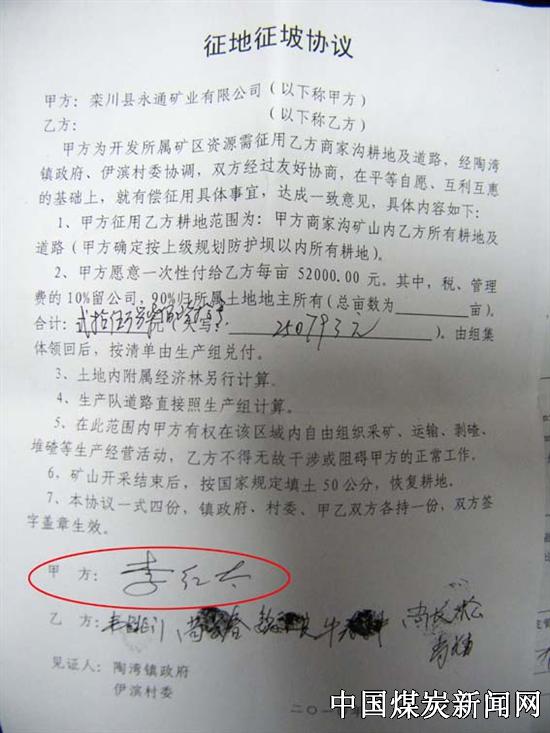 征地征坡协议
甲方：栾川县永通矿业有限公司（以下称甲方）
乙方：（以下称乙方）
甲方为开发所属矿区资源需征用乙方商家沟耕地及道路，经陶湾
镇政府、伊滨村委协调，双方经过友好协商，在平等自愿、互利互惠
的基础上，就有偿征用具体事宜，达成一致意见，具体内容如下：
1、甲方征用乙方耕地范围为：甲方商家沟矿山内乙方所有耕地及
道路（甲方确定按上级规划防护坝以内所有耕地）。
2、甲方愿意一次性付给乙方每亩 52000.00 元。其中，税、管理
费的10%留公司，90%归所属土地地主所有（总亩数为________亩）。
合计： 250793元 ）。由组集
体领回后，按清单由生产组兑付。
3、土地内附属经济林另行计算。
4、生产队道路直接照生产组计算。
5、在此范围内甲方有权在该区域内自由组织采矿、运输、剥碴、
堆碴等生产经营活动，乙方不得无故干涉或阻碍甲方的正常工作。
6、矿山开采结束后，按国家规定填土 50 公分，恢复耕地。
7、本协议一式四份，镇政府、村委、甲乙双方各持一份，双方签
字盖章生效。
甲 方： 李红
乙 方：
见证人：陶湾镇政府
伊滨村委
二〇一
中国煤炭新闻网